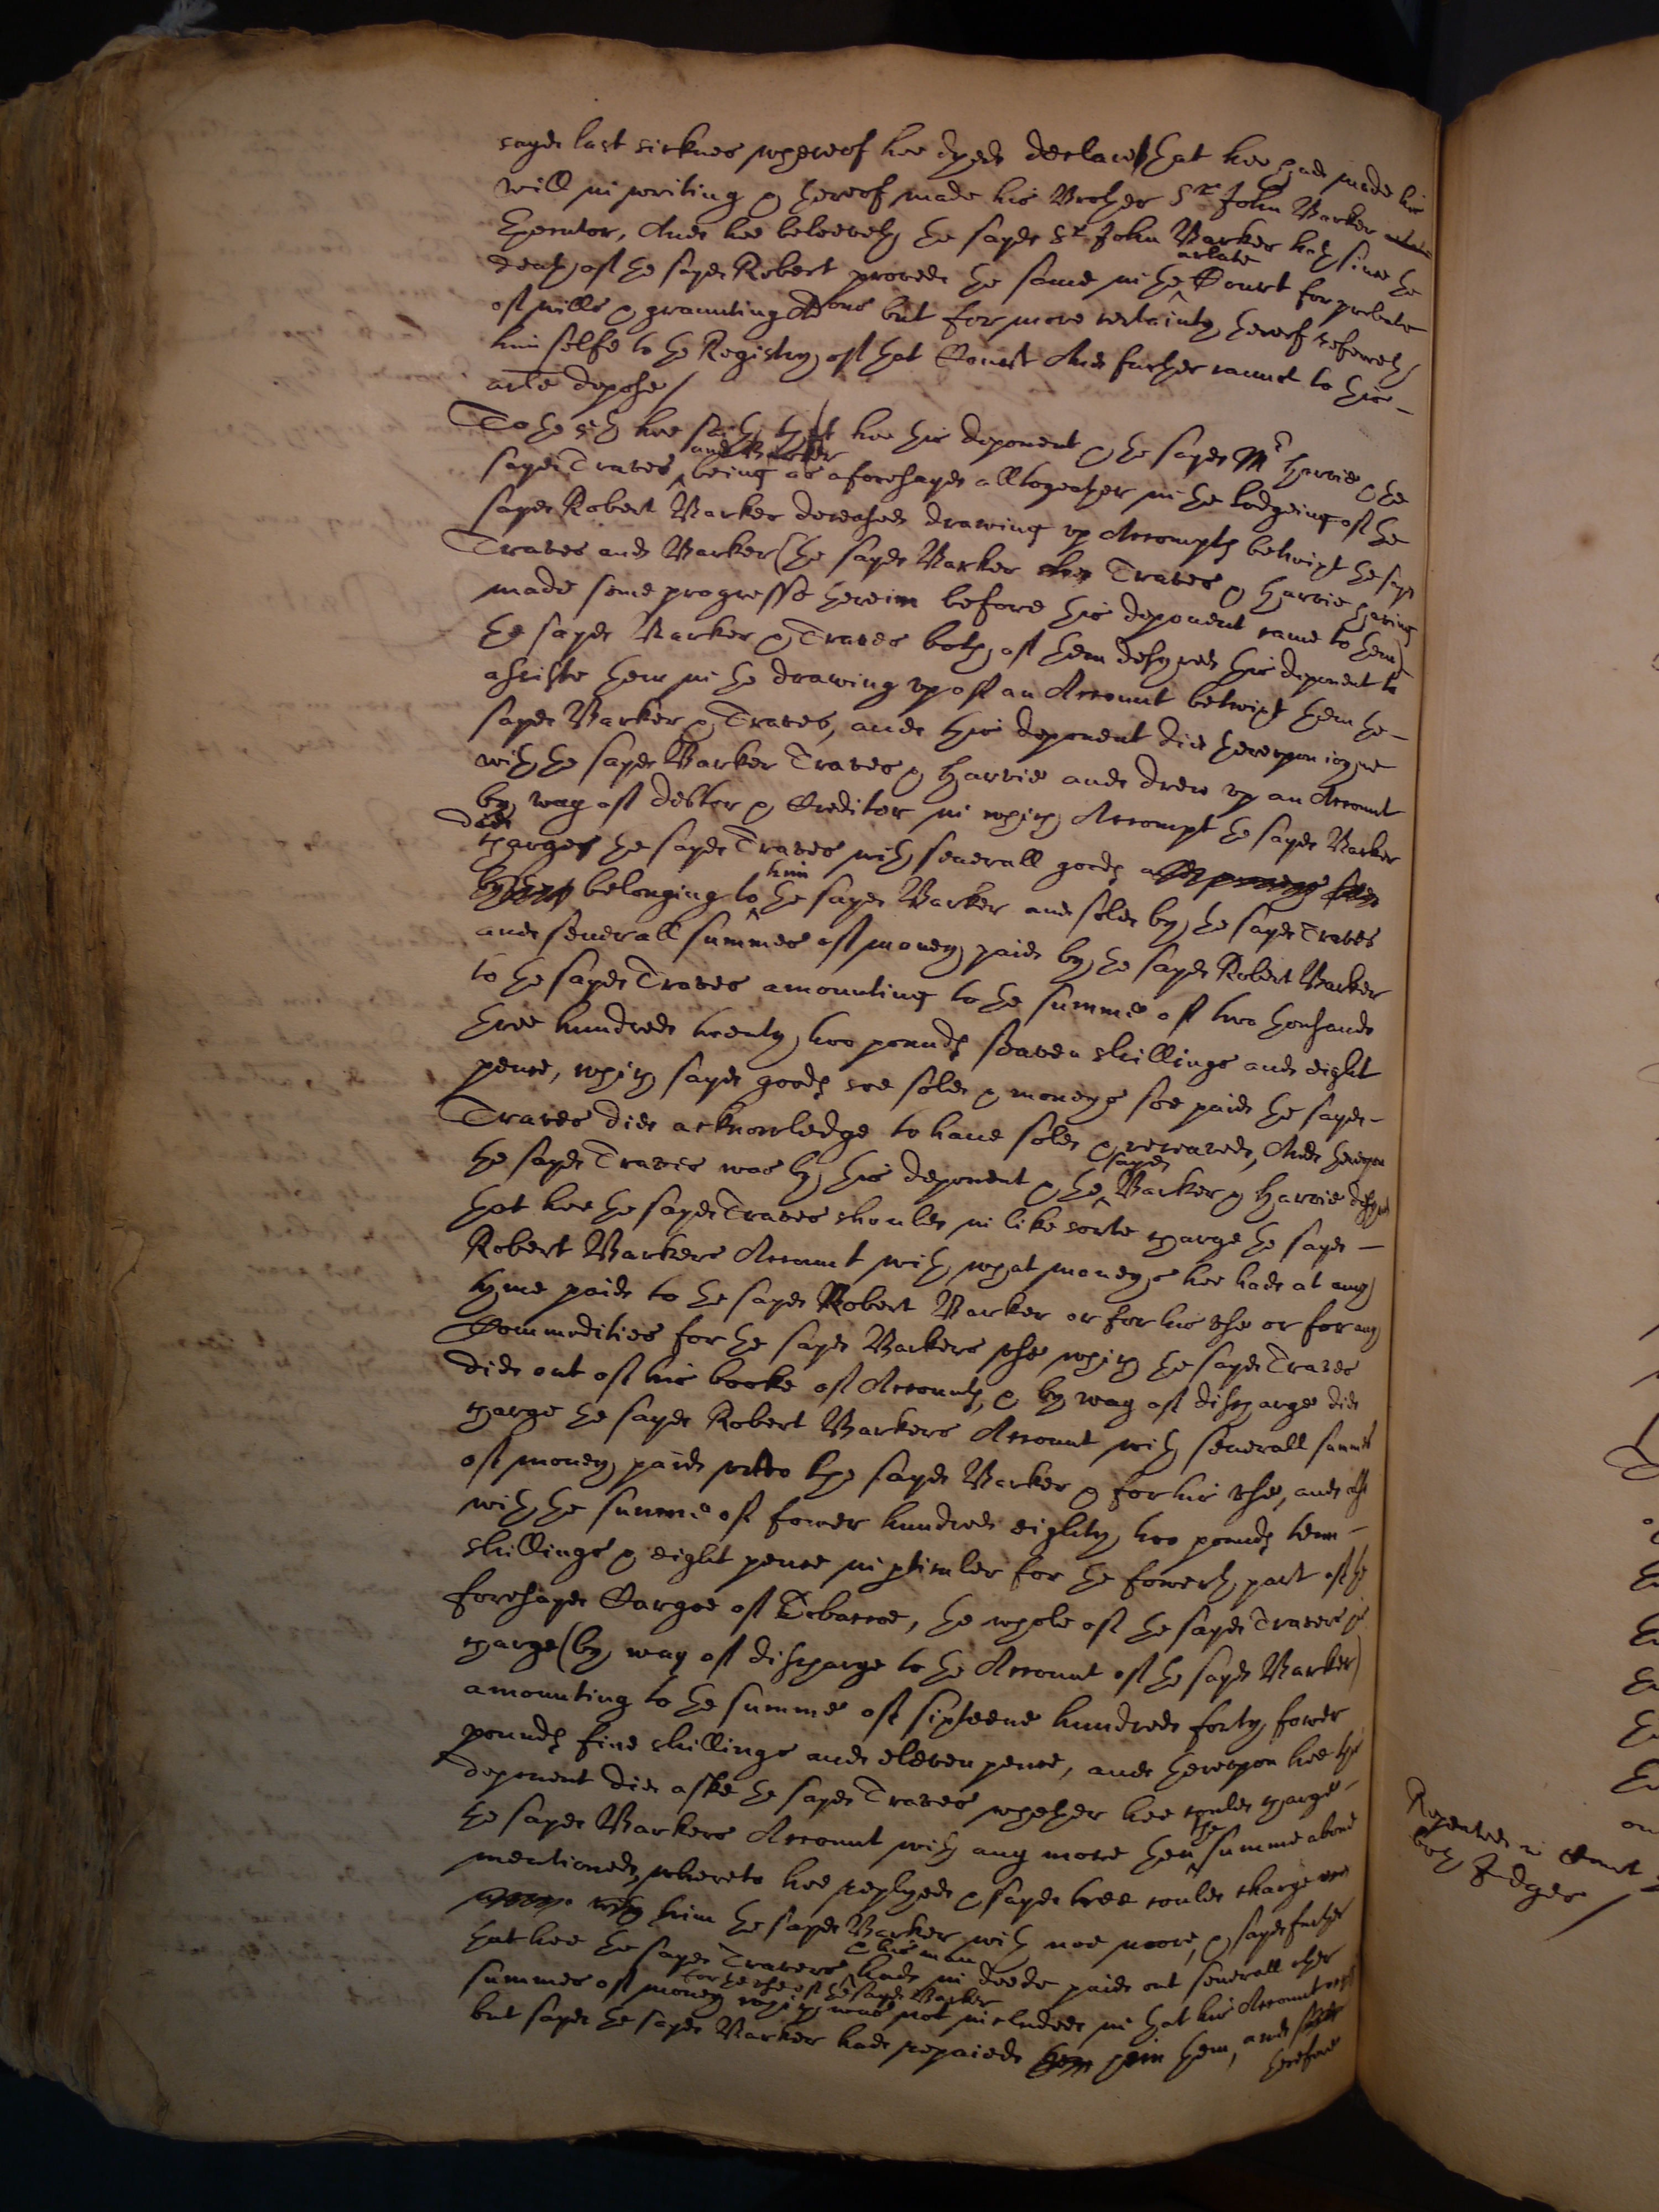 sayd last sicknes whereof hee dyed declared that hee had made his
will in writing & thereof made his Brother Sr John Barker
Executor, And hee beleeveth the sayd Sr John Barker hath since the
death of the sayd Robert proved the same in the arlate Court for probate
of wills & graunting Adons but for more certainty thereof referreth
him selfe to the Registry of that Court And further cannot to this
arle depose /
To the 5th hee saith that hee this deponent & the sayd Mr Harvie & the
sayd Traves and Barker being as aforesayd alltogeather in the lodgeing of the
sayd Robert Barker deceased drawing up Accompts betwixt the sayd
Traves and Barker (the sayd Barker Traves & Harvie having
made some progresse therein before this deponent came to them)
the sayd Barker & Traves both of them desyred this deponent to
assiste them in the drawing up of an Account betwixt them the
sayd Barker & Traves, and this deponent did thereupon ioyne
with the sayd Barker Traves & Harvie and drew up an Account
by way of debtor & Creditor in which Accompt the sayd Barker
did charge the sayd Traves with severall goods
belonging to him the sayd Barker and sold by the sayd Traves
and severall summes of money paid by the sayd Robert Barker
to the sayd Traves amounting to the summe of two thousand
three hundred twenty two pounds seaven shillings and eight
pence, which sayd goods soe sold & moneys soe paid the sayd
Traves did acknowledge to have sold & receaved, And thereupon
the sayd Traves was by this deponent & the sayd Barker & Harvie desyred
that hee the sayd Traves should in like sorte charge the sayd
Robert Barkers Account with what moneys hee had at any
tyme paid to the sayd Robert Barker or for his use or for any
Commodities for the sayd Barkers use which the sayd Traves
did out of his booke of Accounts, & by way of discharge did
charge the sayd Robert Barkers Account with severall summes
of money paid unto the sayd Barker & for his use, and also
with the summe of fower hundred eighty two pounds tenn
shillings & eight pence in pticuler for the fowerth part of the
foresayd Cargoe of Tobaccoe, the whole of the sayd Travers his
charge (by way of discharge to the Account of the sayd Barker)
amounting to the summe of sixteene hundred forty fower
pounds five shillings and eleven pence, and thereupon hee this
deponent did aske the sayd Traves whether hee would charge
the sayd Barkers Account with any more then the summe above
mentioned, whereto hee replyed & sayd hee could charge
him the sayd Barker with noe more, & sayd further
that hee the sayd Travers & his man had in deede paid out severall other
summes of money for the use of the sayd Barker which was not included in that his Account
but sayd the sayd Barker had repaied him them, and
therefore
Repeated in Court
both Judges /